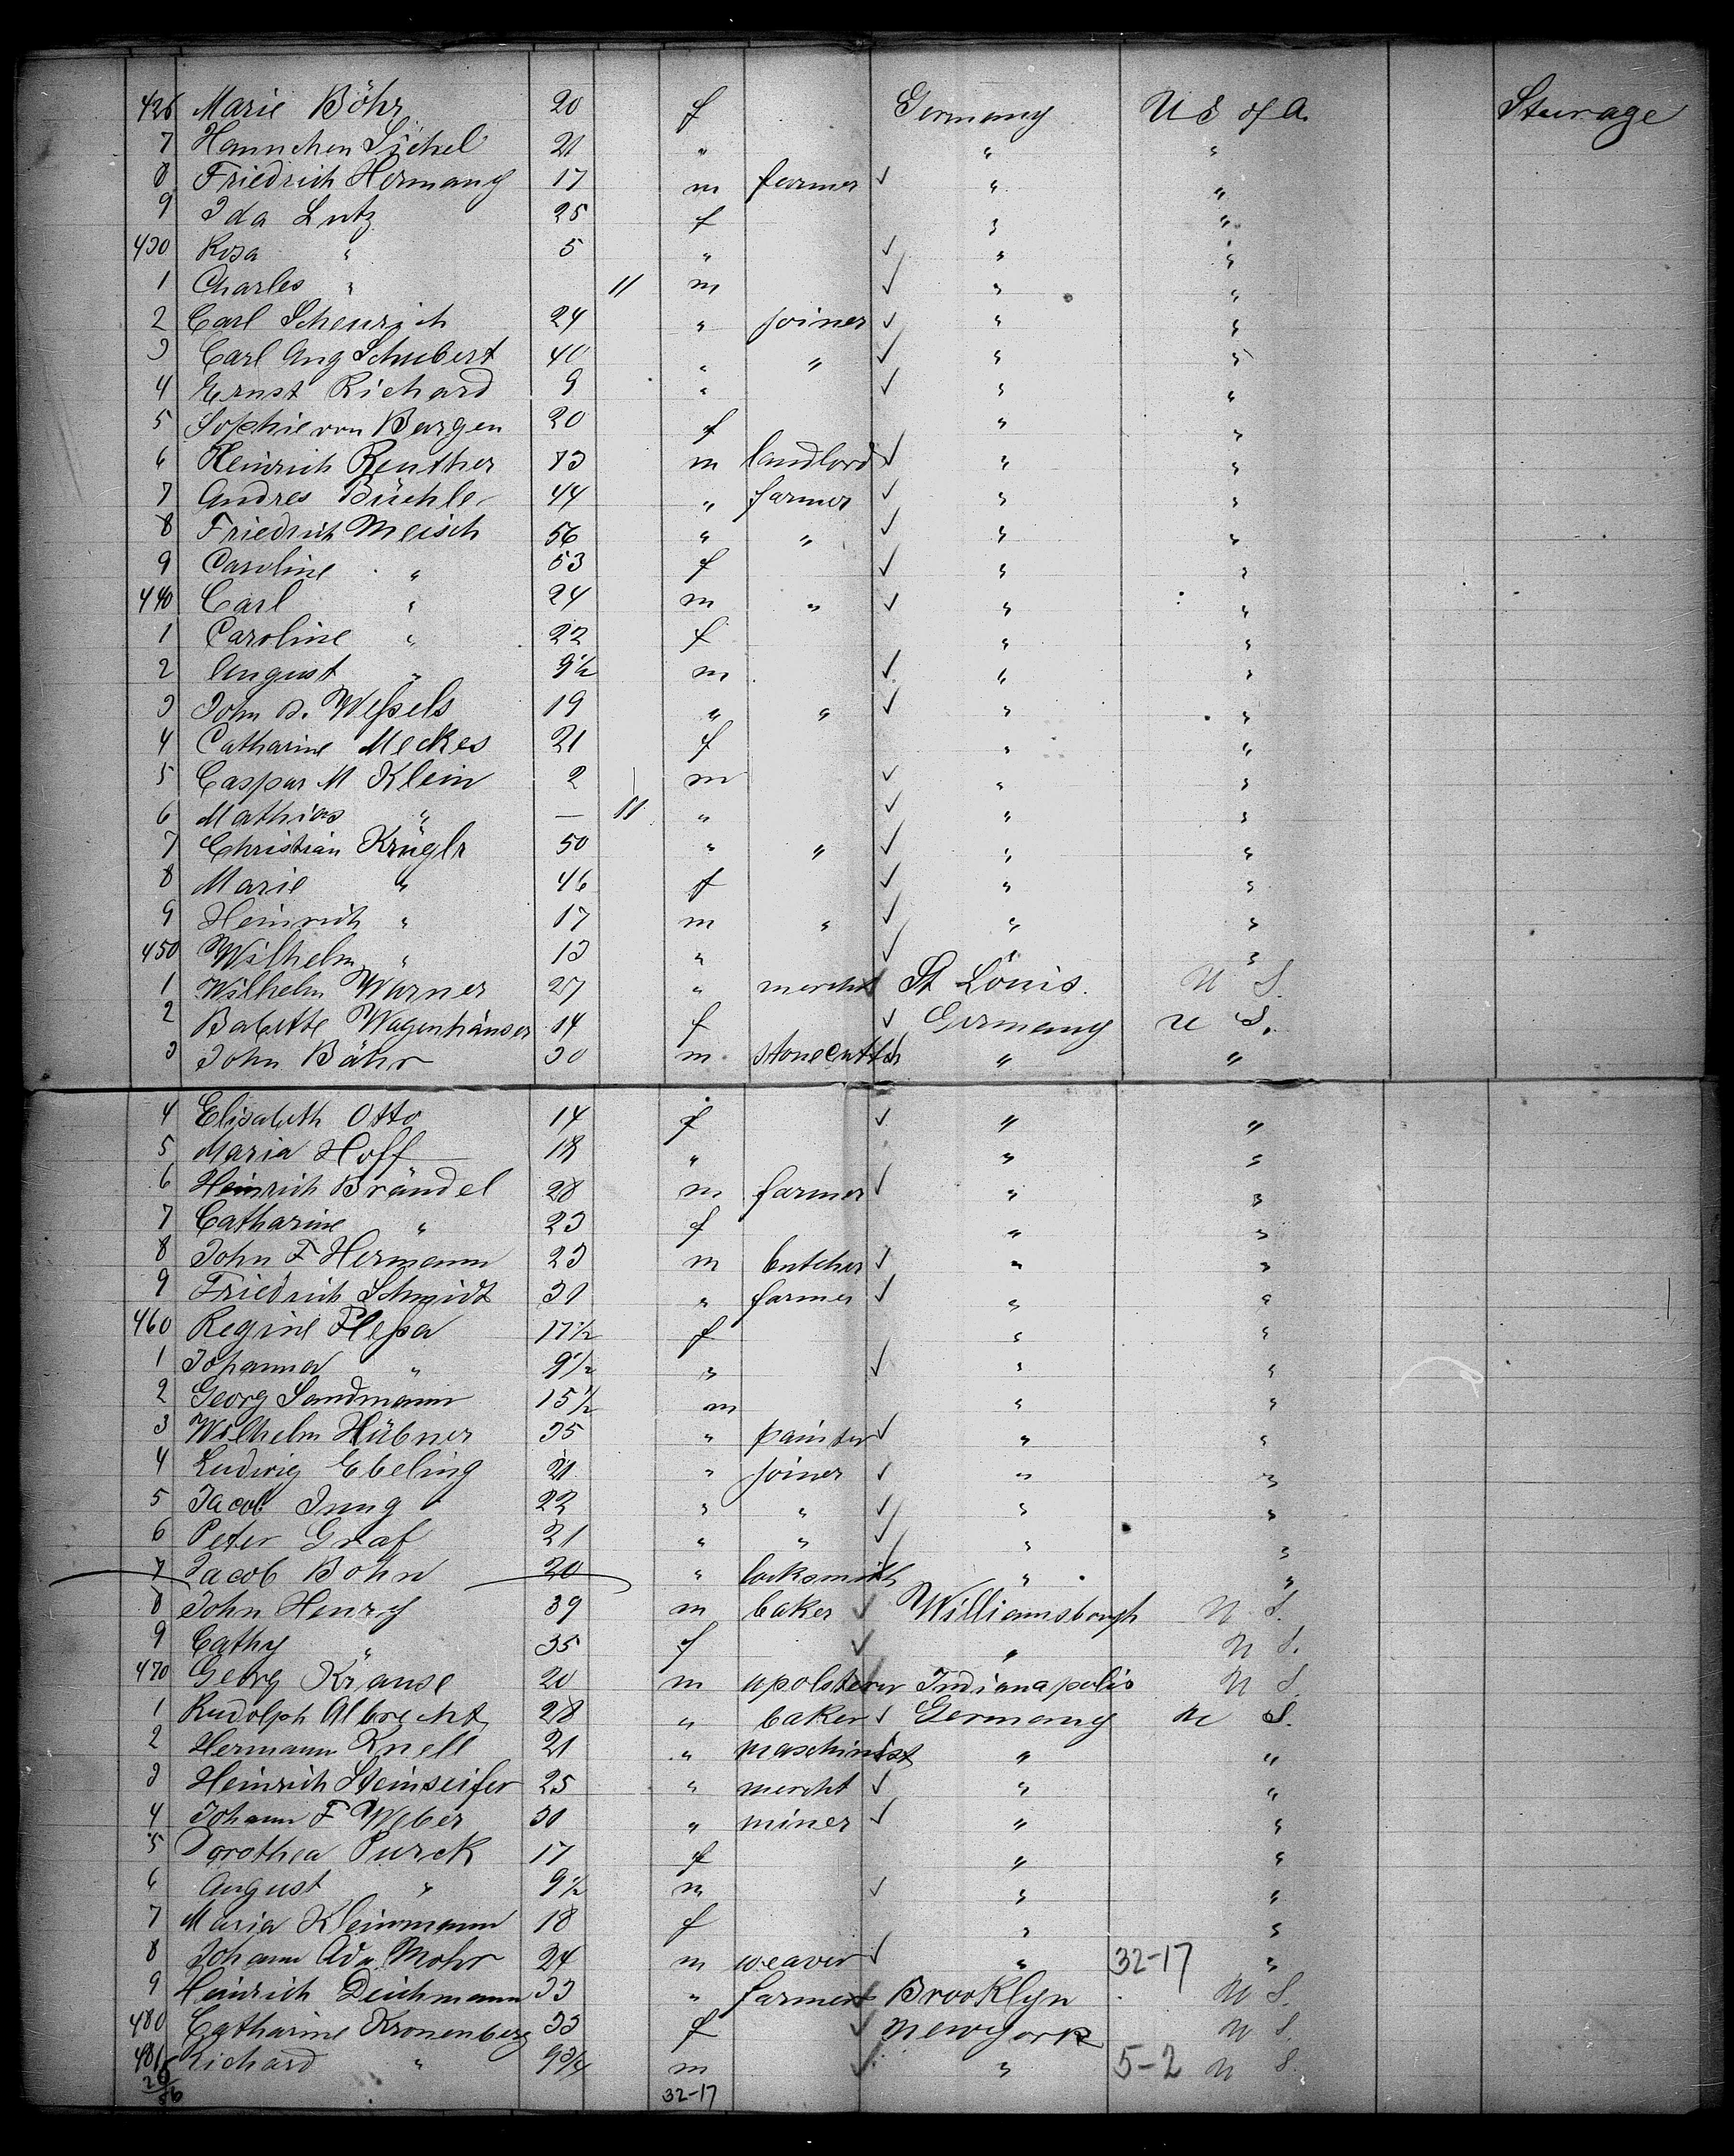 426 Marie Böhr 20 f Germany U S of A. Steerage
7 Hannchen Sichel 21 " " "
8 Friedrich Hermany 17 m farmer ✓ " "
9 Ida Lutz 25 f " "
430 Rosa " 5 " ✓ " "
1 Charles " 11 m ✓ " "
2 Carl Scheurich 24 " joiner ✓ " "
3 Carl Aug Schubert 40 " " ✓ " "
4 Ernst Richard 9 " ✓ " "
5 Sophie von Bargen 20 f " "
6 Heinrich Reuther 73 m landlord ✓ " "
7 Andres Büchle 44 " farmer ✓ " "
8 Friedrich Meisch 56 " " ✓ " "
9 Caroline " 53 f ✓ " "
440 Carl " 24 m " ✓ " "
1 Caroline " 22 f " "
2 August " 9½ m ✓ " "
3 John D. Wessels 19 " " ✓ " "
4 Catharine Meckes 21 f " "
5 Caspar M Klein 2 m ✓ " "
6 Mathias " — 11 " ✓ " "
7 Christian Krüglr 50 " " ✓ " "
8 Marie " 46 f ✓ " "
9 Heinrich " 17 m " ✓ " "
450 Wilhelm " 13 " ✓ " "
1 Wilhelm Warner 27 " mercht ✓ St Louis. U S.
2 Babette Wagenhäuser 14 f ✓ Germany U S.
3 John Bähr 30 m stonecutter ✓ " "
4 Elisabeth Otto 14 f ✓ " "
5 Maria Hoff 18 " " "
6 Heinrich Brändel 28 m farmer ✓ " "
7 Catharine " 23 f " "
8 John F Hermann 23 m butcher ✓ " "
9 Friedrich Schmidt 31 " farmer ✓ " "
460 Regine Flessa 17½ f " "
1 Johanna " 9½ " ✓ " "
2 Georg Sandmann 15½ m " "
3 Wilhelm Hübner 35 " painter ✓ " "
4 Ludwig Ebeling 21 " joiner ✓ " "
5 Jacob Jung 22 " " ✓ " "
6 Peter Graf 21 " " ✓ " "
7 Jacob Bohn 20 " locksmith ✓ " "
8 John Henry 39 m baker ✓ Williamsburgh U S.
9 Cathy " 35 f ✓ " U S.
470 Georg Krause 20 m upolsterer Indianapolis U S.
1 Rudolph Albrecht 28 " baker ✓ Germany U S.
2 Hermann Knell 21 " maschinist ✓ " "
3 Heinrich Steinseifer 25 " mercht ✓ " "
4 Johann F Weber 30 " miner ✓ " "
5 Dorothea Purck 17 f " "
6 August " 9½ m ✓ " "
7 Maria Kleinmann 18 f " "
8 Johann Ada Mohr 24 m weaver ✓ " 32-17 "
9 Heinrich Deichmann 33 " farmer ✓ Brooklyn U S.
480 Catharine Kronenberg 33 f ✓ Newyork U S.
481 Richard " 9¾ m ✓ " 5-2 U S.
32-17